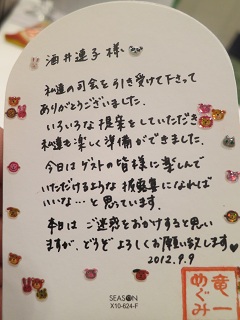 酒井達子様
私達の司会を引き受けて下さって
ありがとうございました。
いろいろな提案をしていただき
私達も楽しく準備ができました。
今日はゲストの皆様に楽しんで
いただけるような披露宴になれば
いいな…と思っています。
本日はご迷惑をおかけすると思い
ますが、どうぞよろしくお願い致します♥
2012.9.9
竜一
めぐみ
SEASON
X10-624-F